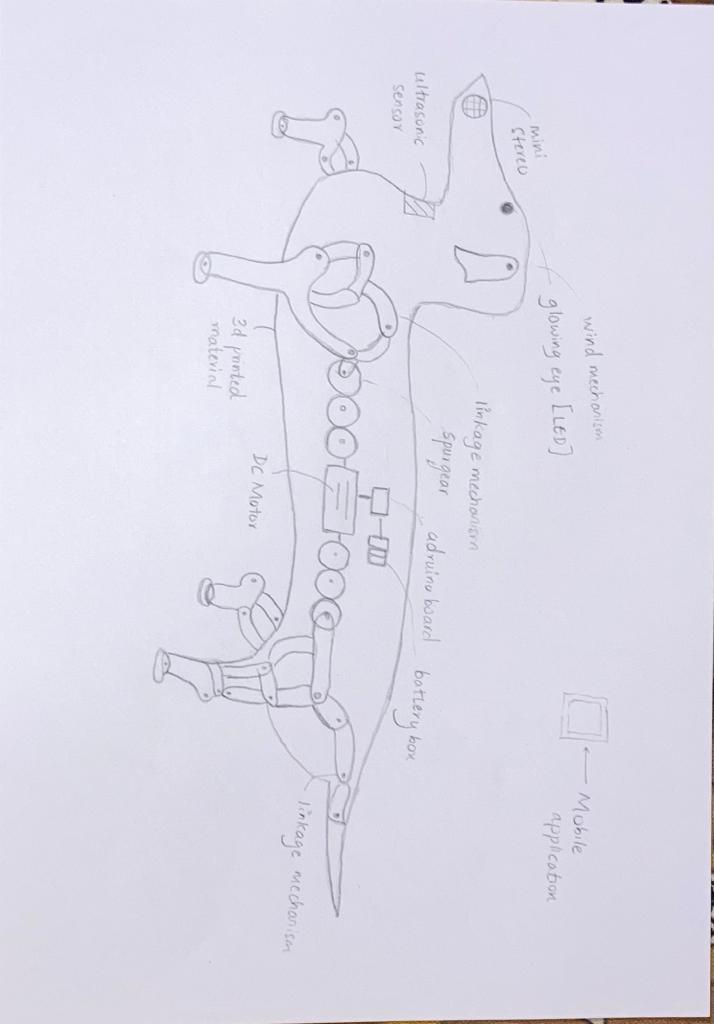 wind mechanism
glowing eye [LED]
mini
stereo
Mobile
application
linkage mechanism
spurgear
adruino board
battery box
ultrasonic
sensor
linkage mechanism
DC Motor
3d printed
material